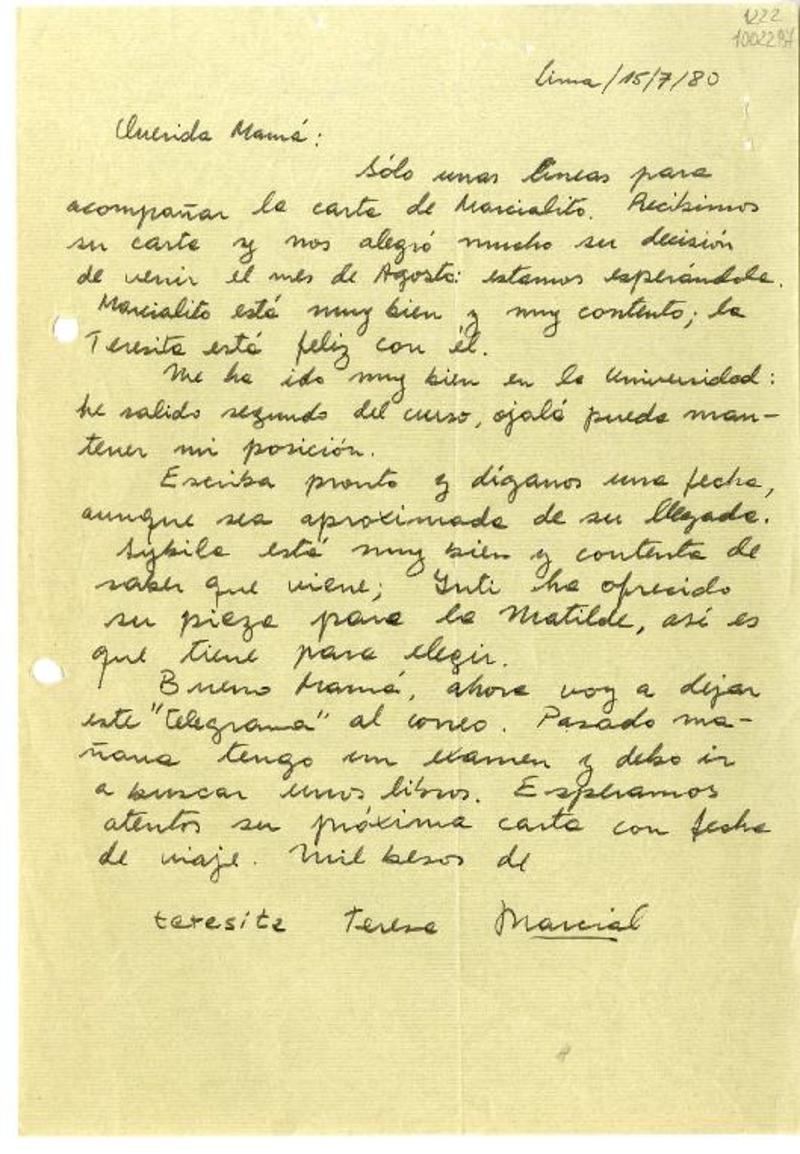 1222
1002297
Lima/15/7/80
Querida Mamá:
Sólo unas líneas para
acompañar la carta de Marcialito. Recibimos
su carta y nos alegró mucho su decisión
de venir el mes de Agosto: estamos esperándola.
Marcialito está muy bien y muy contento; la
Teresita está feliz con él.
Me ha ido muy bien en la Universidad:
he salido segundo del curso, ojalá pueda man-
tener mi posición.
Escriba pronto y díganos una fecha,
aunque sea aproximada de su llegada.
Sybila está muy bien y contenta de
saber que viene; Guti ha ofrecido
su pieza para la Matilde, así es
que tiene para elegir.
Bueno Mamá, ahora voy a dejar
este "telegrama" al correo. Pasado ma-
ñana tengo un examen y debo ir
a buscar unos libros. Esperamos
atentos su próxima carta con fecha
de viaje. Mil besos de
teresita Teresa Marcial